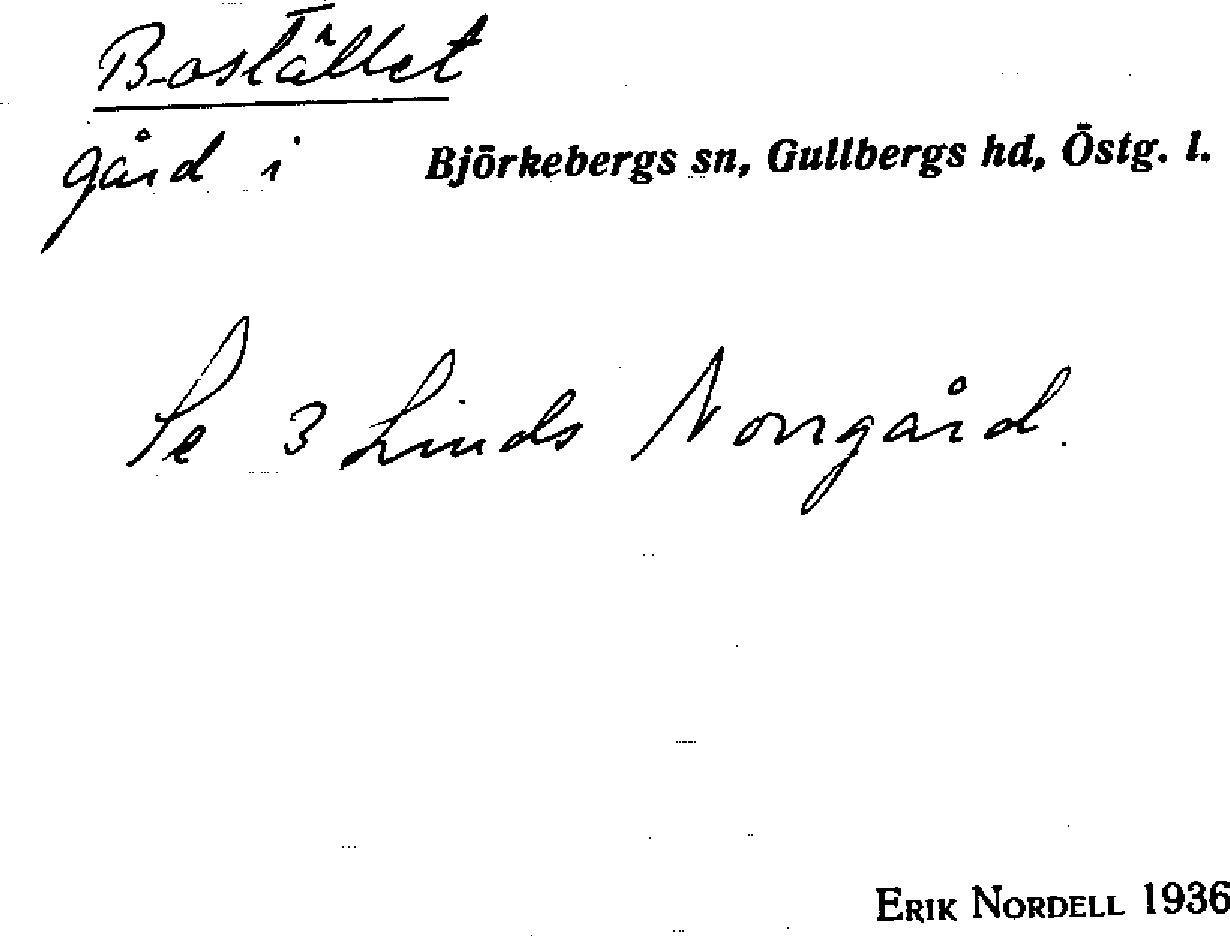 Bostället
gård i Björkebergs sn, Gullbergs hd, Östg. l.
Se 3 Linds Norrgård.
ERIK NORDELL 1936